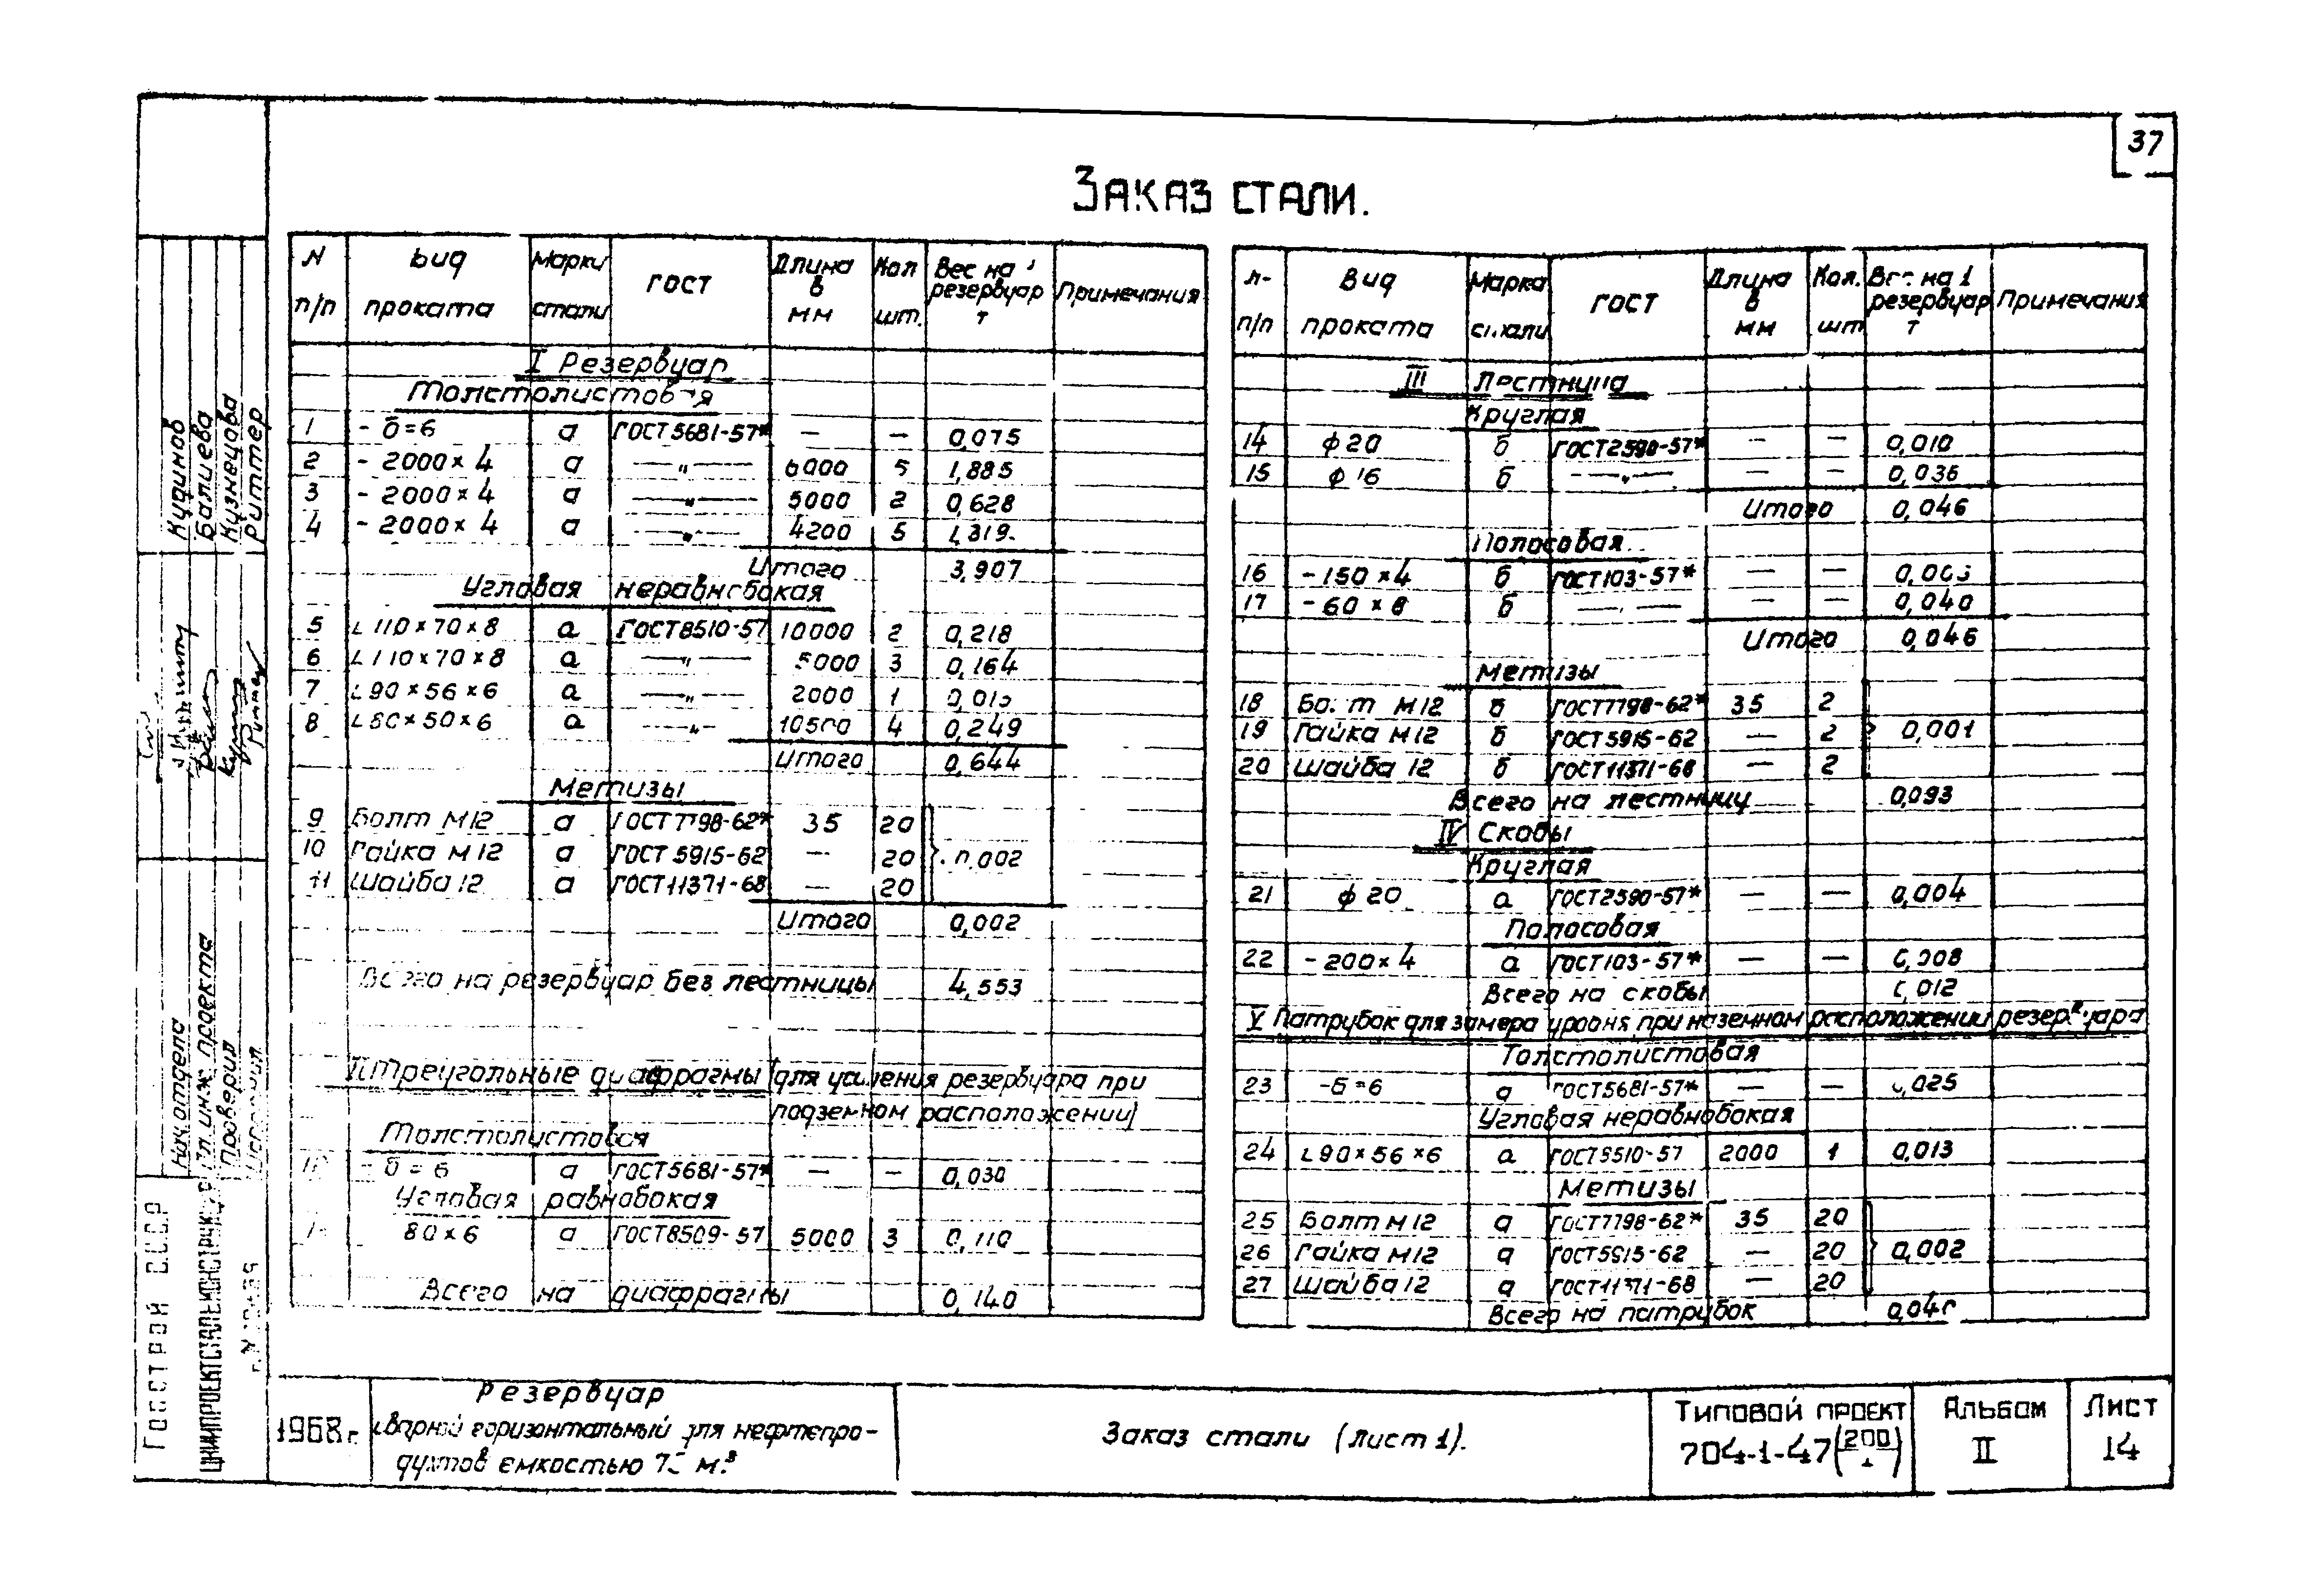 37
Заказ стали.
N п/п Вид проката Марки стали ГОСТ Длина в мм Кол шт. Вес на 1 резервуар т Примечания
I Резервуар
Толстолистовая
1 - δ=6 а ГОСТ5681-57* — — 0,075
2 - 2000×4 а —"— 6000 5 1,885
3 - 2000×4 а —"— 5000 2 0,628
4 - 2000×4 а —"— 4200 5 1,319
Итого 3,907
Угловая неравнобокая
5 L 110×70×8 а ГОСТ8510-57 10000 2 0,218
6 L 110×70×8 а —"— 5000 3 0,164
7 L 90×56×6 а —"— 2000 1 0,013
8 L 80×50×6 а —"— 10500 4 0,249
Итого 0,644
Метизы
9 Болт М12 а ГОСТ7798-62* 35 20
10 Гайка М12 а ГОСТ5915-62 — 20 0,002
11 Шайба 12 а ГОСТ11371-68 — 20
Итого 0,002
Всего на резервуар без лестницы 4,553
II Треугольные диафрагмы (для усиления резервуара при
подземном расположении)
Толстолистовая
- δ=6 а ГОСТ5681-57* — — 0,030
Угловая равнобокая
80×6 а ГОСТ8509-57 5000 3 0,110
Всего на диафрагмы 0,140
п/п Вид проката Марка стали ГОСТ Длина в мм Кол. шт Вес на 1 резервуар т Примечания
III Лестница
Круглая
14 ф20 б ГОСТ2590-57* — — 0,010
15 ф16 б —"— — — 0,036
Итого 0,046
Полосовая
16 -150×4 б ГОСТ103-57* — — 0,006
17 -60×8 б —"— — — 0,040
Итого 0,046
Метизы
18 Болт М12 б ГОСТ7798-62* 35 2
19 Гайка М12 б ГОСТ5915-62 — 2 0,001
20 Шайба 12 б ГОСТ11371-68 — 2
Всего на лестницу 0,093
IV Скобы
Круглая
21 ф20 а ГОСТ2590-57* — — 0,004
Полосовая
22 -200×4 а ГОСТ103-57* — — 0,008
Всего на скобы 0,012
V Патрубок для замера уровня при наземном расположении резервуара
Толстолистовая
23 -δ=6 а ГОСТ5681-57* — — 0,025
Угловая неравнобокая
24 L90×56×6 а ГОСТ8510-57 2000 1 0,013
Метизы
25 Болт М12 а ГОСТ7798-62* 35 20
26 Гайка М12 а ГОСТ5915-62 — 20 0,002
27 Шайба 12 а ГОСТ11371-68 — 20
Всего на патрубок 0,040
Кудинов
Балиева
Кузнецова
Риттер
Нач. отдела
Гл. инж. проекта
Проверил
Исполнил
Госстрой СССР
ЦНИИПРОЕКТСТАЛЬКОНСТРУКЦИЯ
1968г.
Резервуар
сварной горизонтальный для нефтепро-
дуктов емкостью м.³
Заказ стали (лист 1).
Типовой проект
704-1-47
Альбом
II
Лист
14